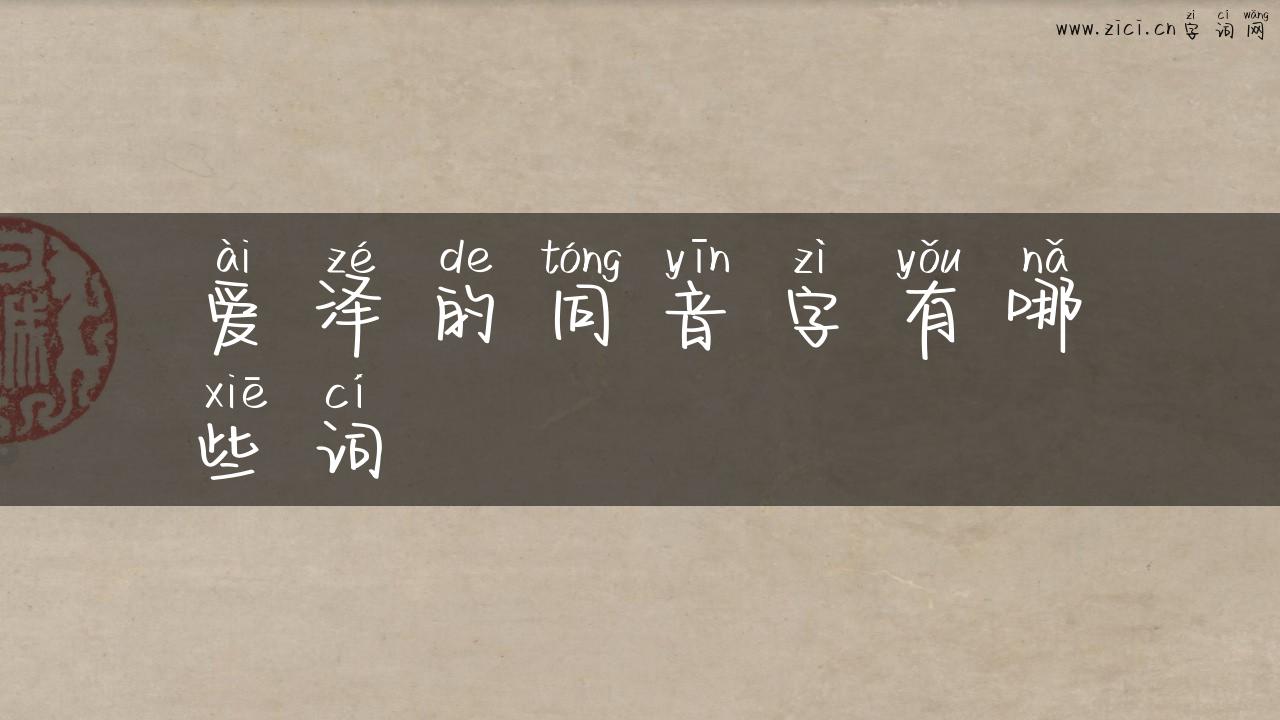 zì cí wǎng
www.zici.cn 字词网
ài zé de tóng yīn zì yǒu nǎ
爱泽的同音字有哪
xiē cí
些词